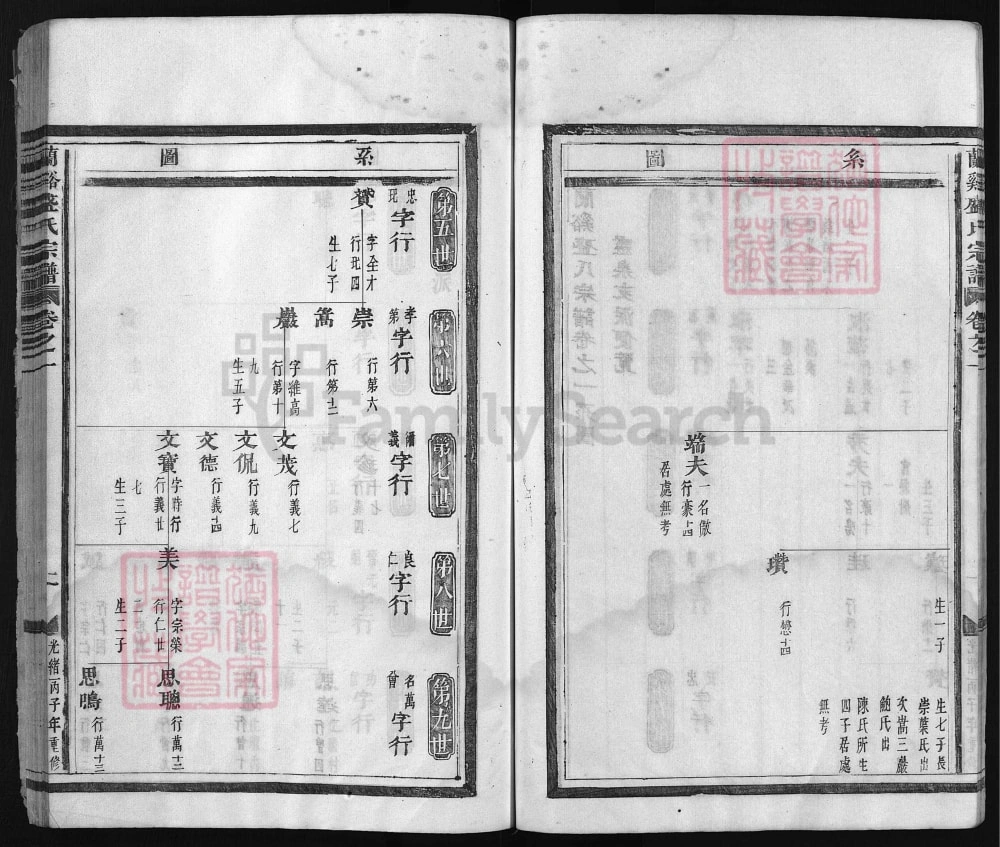 蘭谿盛氏宗譜 卷之一
系圖
生一子
生七子長
崇葉氏出
次嵩三嚴
鮑氏出
陳氏所生
四子居處
無考
瓚
行戀十四
端夫
一名倣
行豪十四
居處無考
系圖
第五世
忠玭字行
贊
字全才
行玭四
生七子
第六世
孝第字行
崇
行第六
嵩
行第十二
巖
字維高
行第十
九
生五子
第七世
義字行
文茂
行義七
文侃
行義九
文德
行義十四
文寶
字時行
行義廿
七
生三子
第八世
良仁字行
美
字宗榮
行仁廿
二
生二子
第九世
名萬會字行
思聰
行萬十二
思鳴
行萬十三
蘭谿盛氏宗譜 卷之一
光緒丙子年重修
FamilySearch